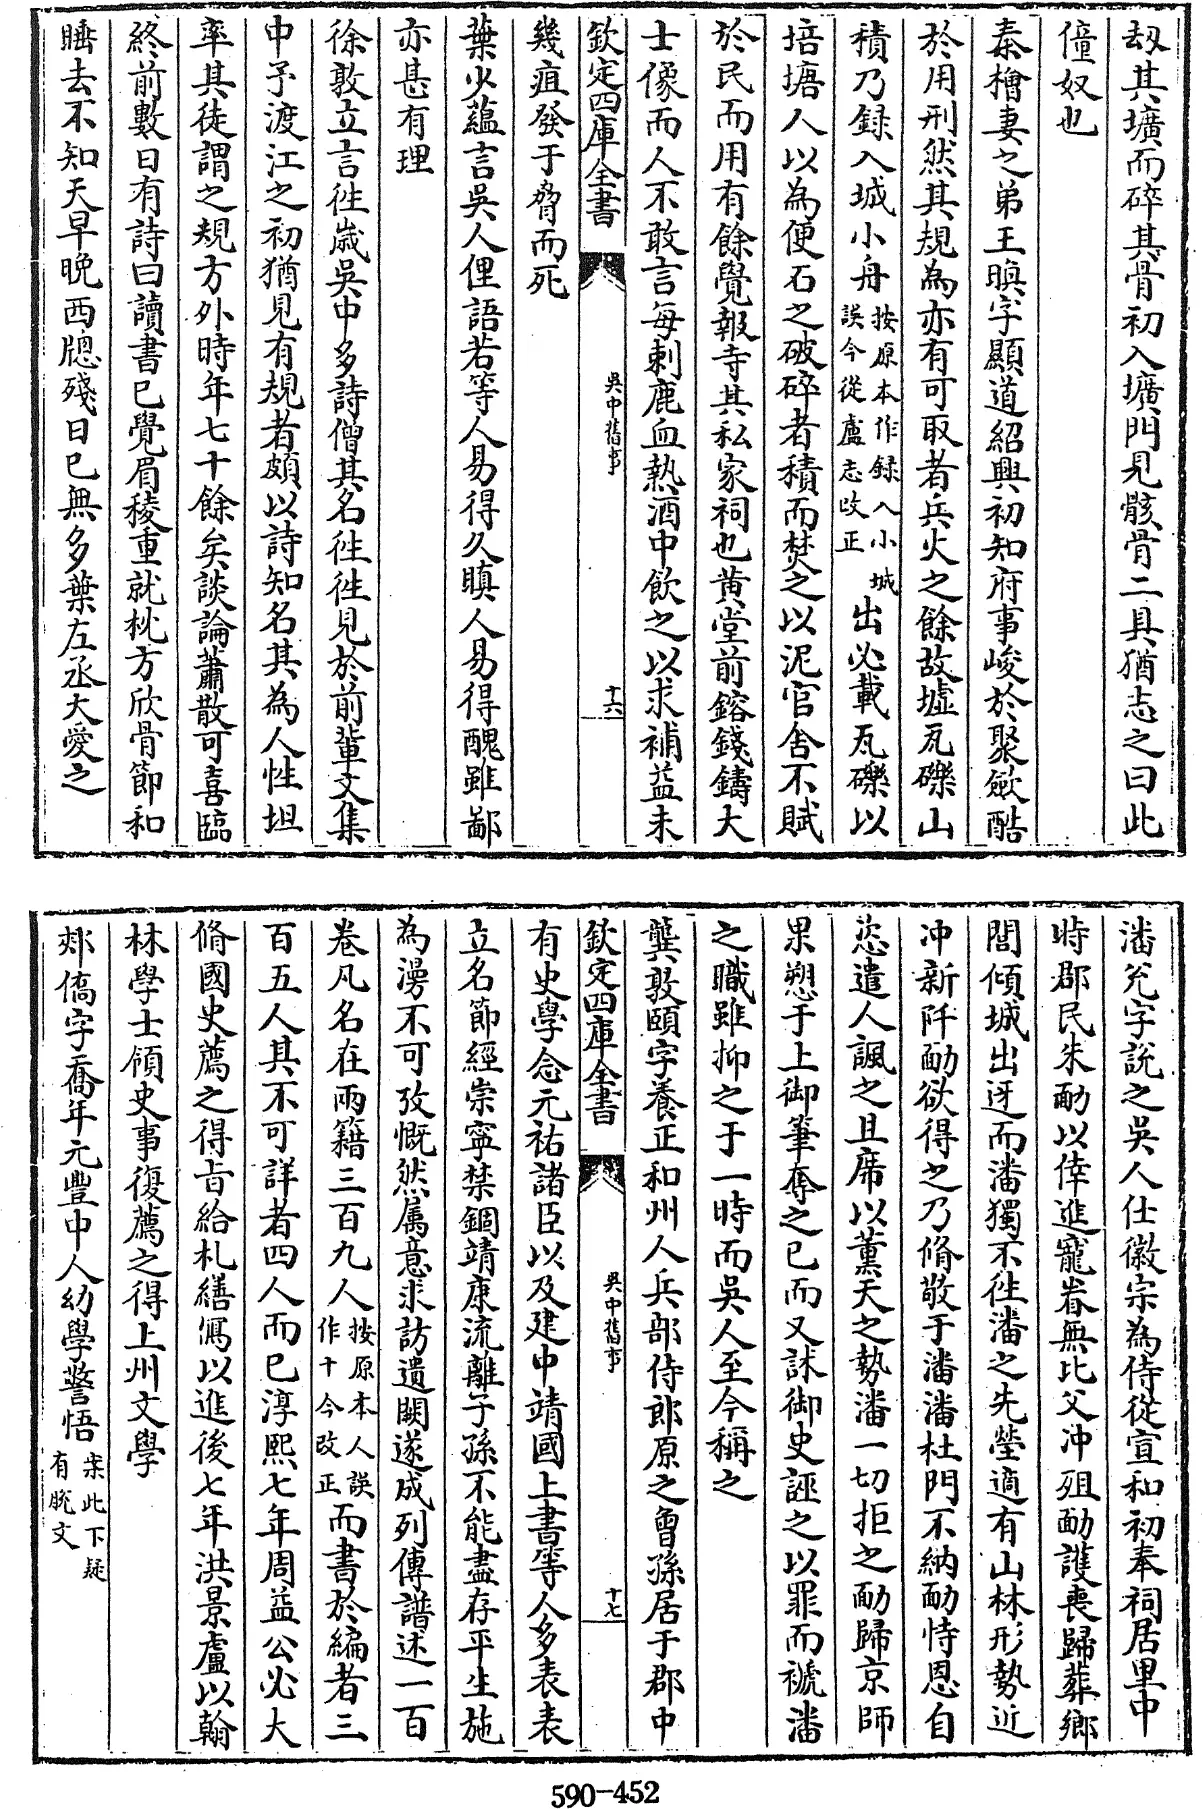 刼其壙而碎其骨初入壙門見骸骨二具猶志之曰此
僮奴也
秦檜妻之弟王㬇字顯道紹興初知府事峻於聚歛酷
於用刑然其規為亦有可取者兵火之餘故墟瓦礫山
積乃録入城小舟按原本作録入小城誤今從盧志改正出必載瓦礫以
培塘人以為便石之破碎者積而焚之以泥官舍不賦
於民而用有餘覺報寺其私家祠也黄堂前鎔錢鑄大
士像而人不敢言每刺鹿血熱酒中飲之以求補益未
欽定四庫全書
吳中舊事
十六
幾疽發于脅而死
葉少蘊言吳人俚語若等人易得久瞋人易得醜雖鄙
亦甚有理
徐敦立言徃歲吳中多詩僧其名徃徃見於前輩文集
中予渡江之初猶見有規者頗以詩知名其為人性坦
率其徒謂之規方外時年七十餘矣談論蕭散可喜臨
終前數日有詩曰讀書已覺眉稜重就枕方欣骨節和
睡去不知天早晚西牕殘日已無多葉左丞大愛之
潘兊字說之吳人仕徽宗為侍從宣和初奉祠居里中
時郡民朱勔以倖進寵眷無比父冲殂勔護喪歸葬鄉
閭傾城出迓而潘獨不徃潘之先塋適有山林形勢近
冲新阡勔欲得之乃脩敬于潘潘杜門不納勔恃恩自
恣遣人諷之且席以薫天之勢潘一切拒之勔歸京師
果愬于上御筆奪之已而又訹御史誣之以罪而褫潘
之職雖抑之于一時而吳人至今稱之
龔敦頤字養正和州人兵部侍郎原之曾孫居于郡中
欽定四庫全書
吳中舊事
十七
有史學念元祐諸臣以及建中靖國上書等人多表表
立名節經崇寧禁錮靖康流離子孫不能盡存平生施
為漫不可攷慨然属意求訪遺闕遂成列傳譜述一百
卷凡名在兩籍三百九人按原本人誤作十今改正而書於編者三
百五人其不可詳者四人而已淳熙七年周益公必大
脩國史薦之得旨給札繕寫以進後七年洪景盧以翰
林學士領史事復薦之得上州文學
郟僑字喬年元豐中人幼學警悟案此下疑有脱文
590-452